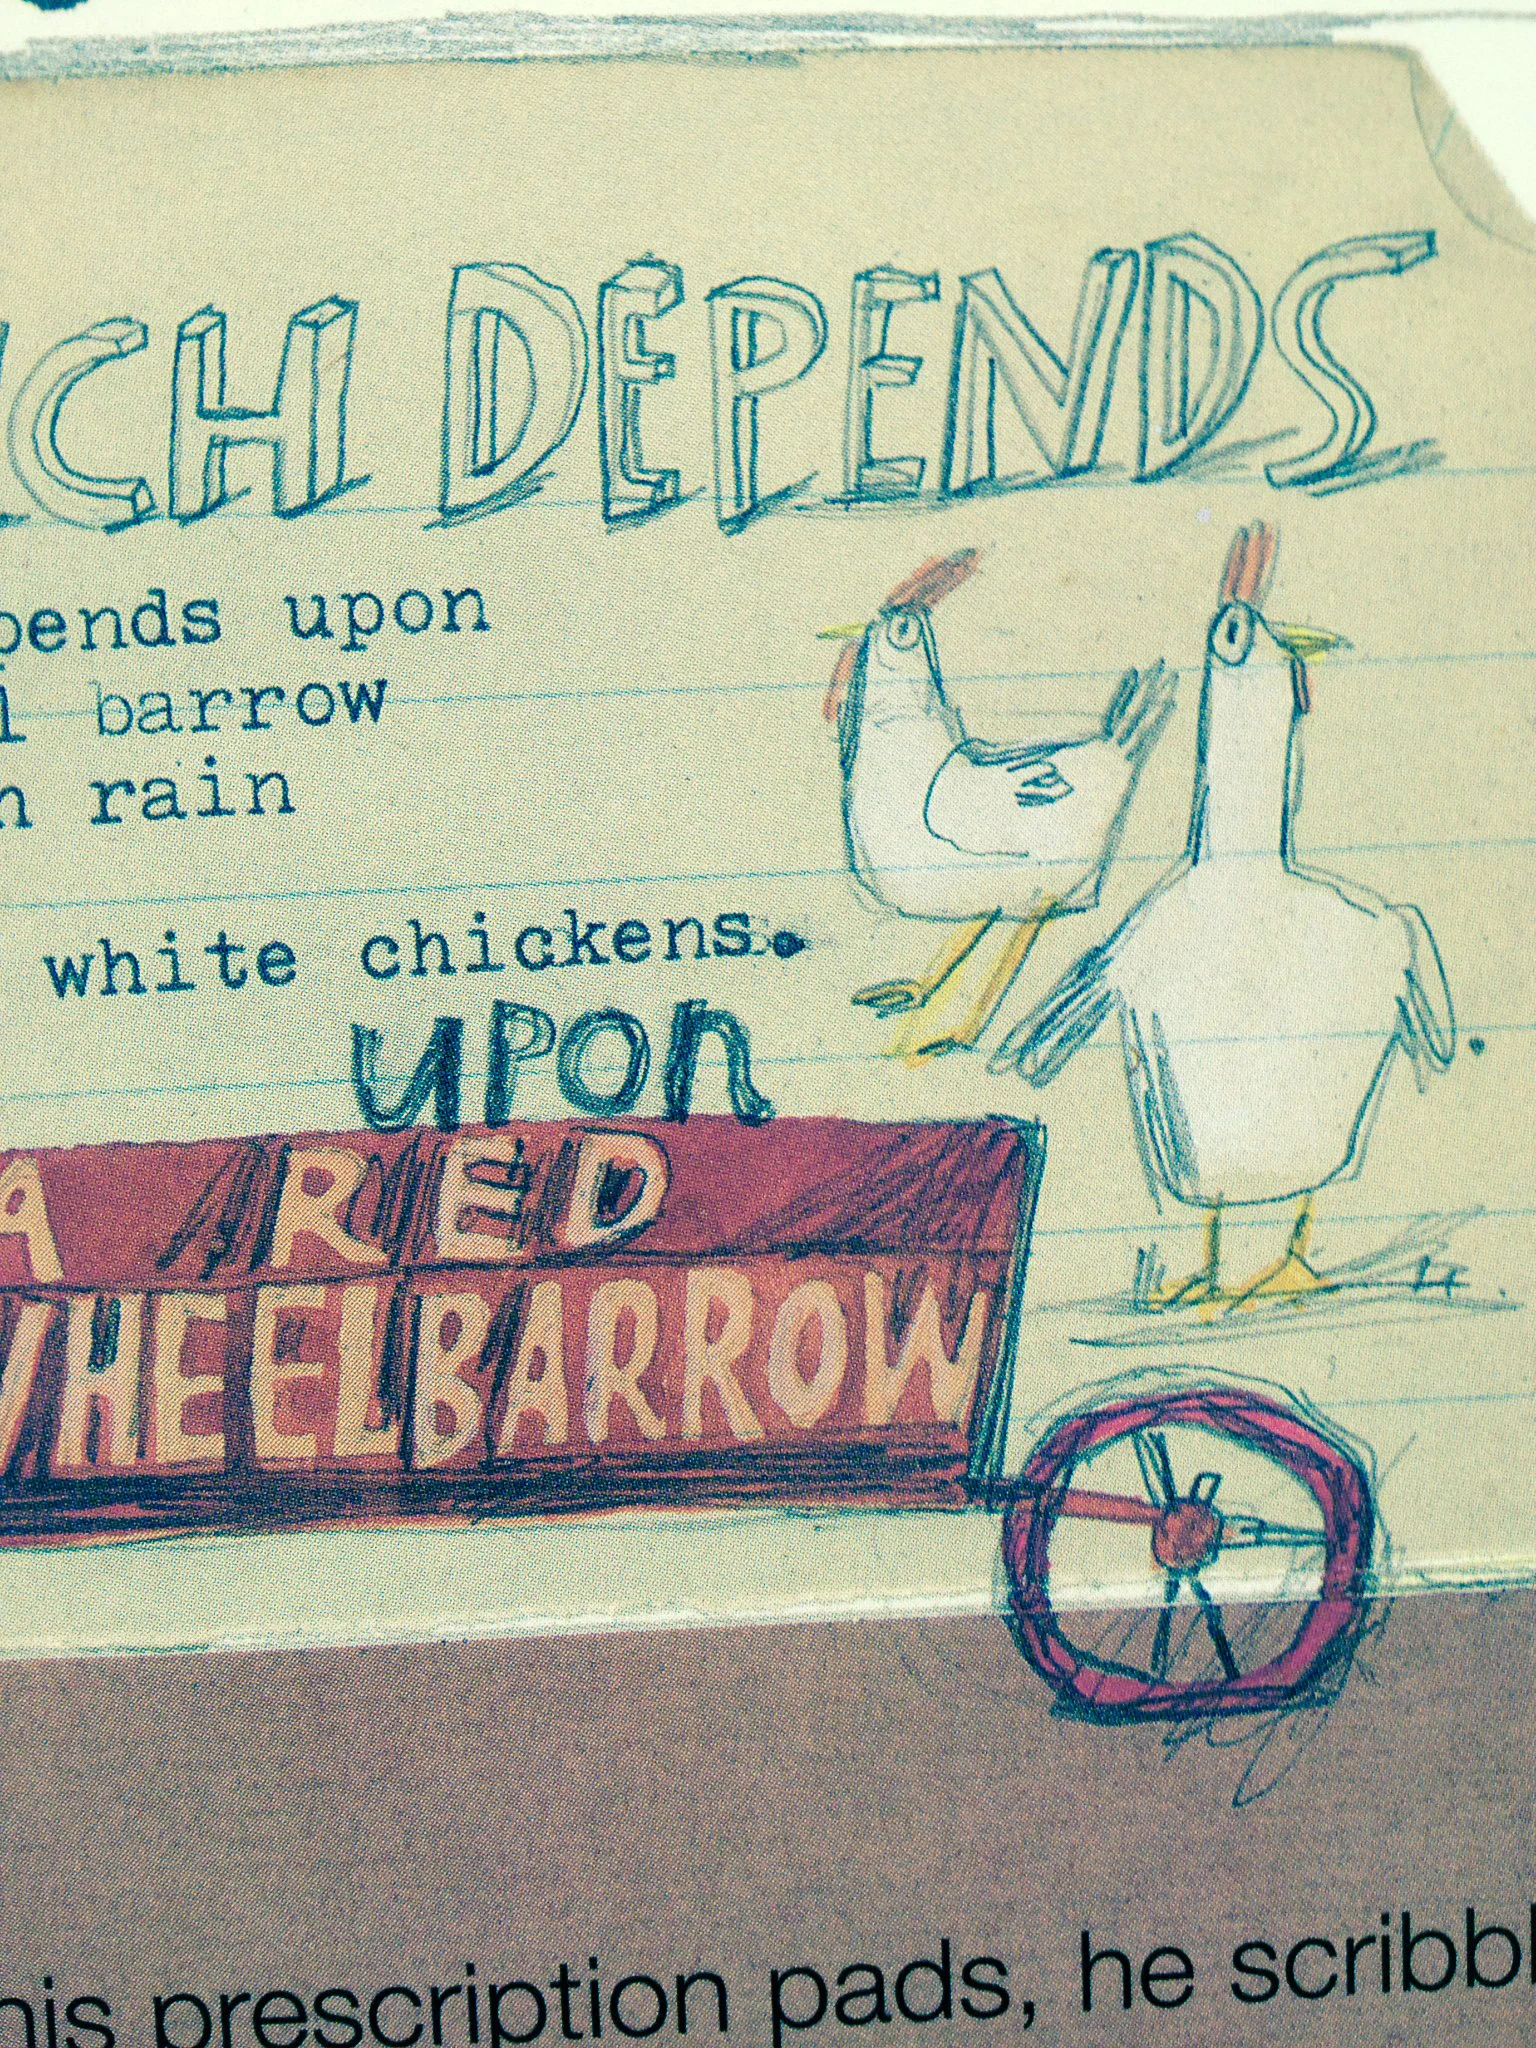 CH DEPENDS
pends upon
l barrow
n rain
white chickens.
UPON
A RED
WHEELBARROW
his prescription pads, he scribbl